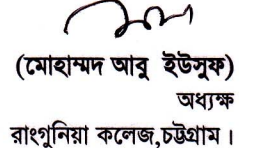 (মোহাম্মদ আবু ইউসুফ)
অধ্যক্ষ
রাংগুনিয়া কলেজ,চট্টগ্রাম।